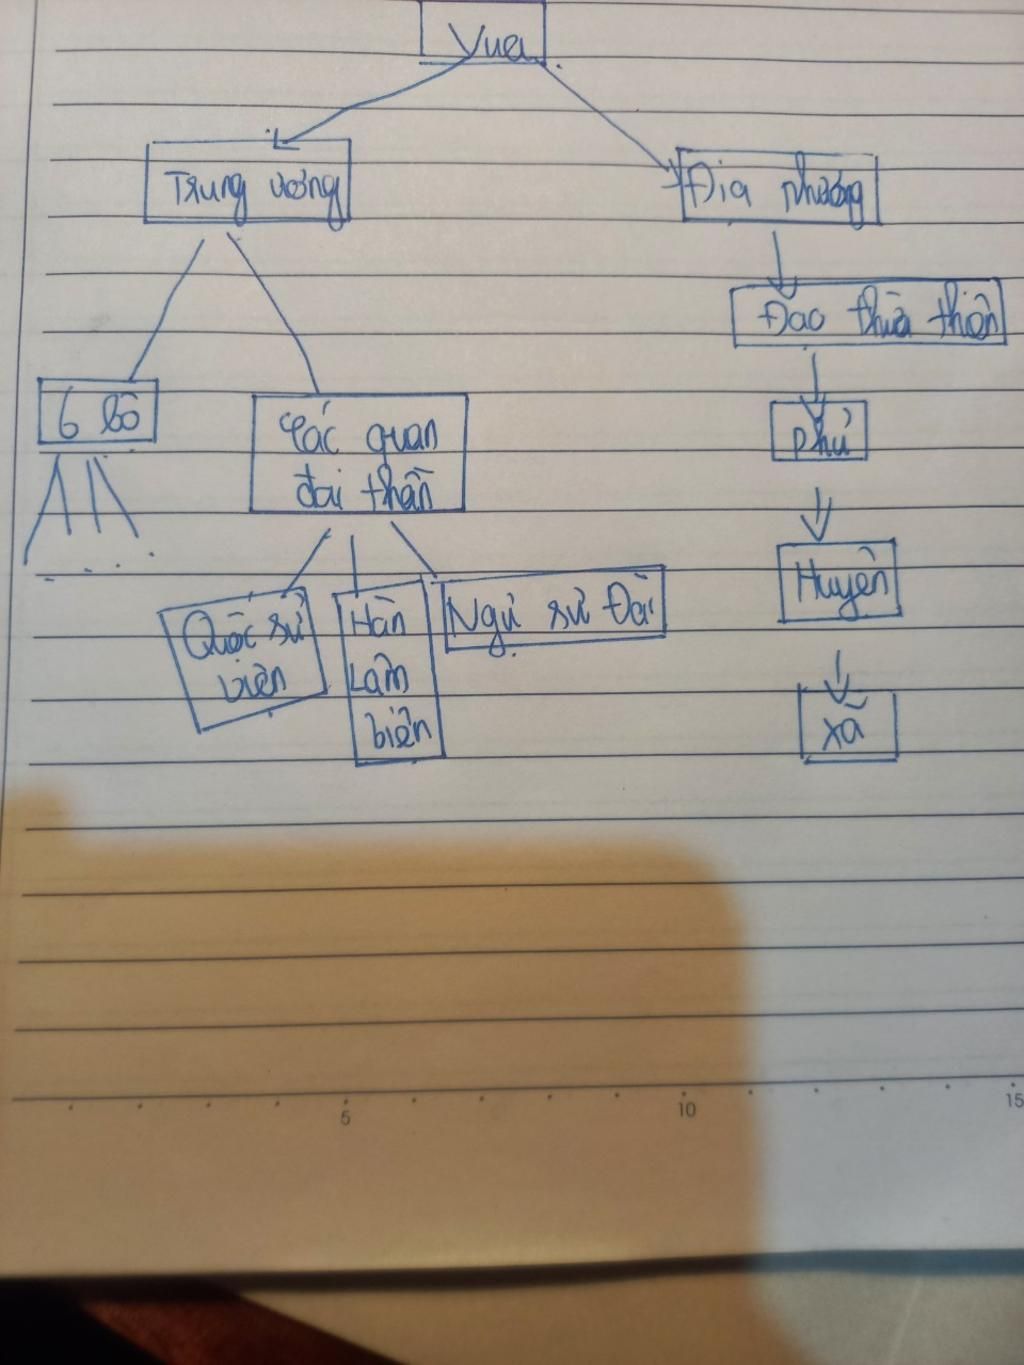 Vua
Trung ương
Địa phương
Đạo thừa thiên
6 bộ
Các quan
đại thần
phủ
Huyện
Quốc sử
viện
Hàn
Lâm
biện
Ngự sử Đài
xã
5
10
15